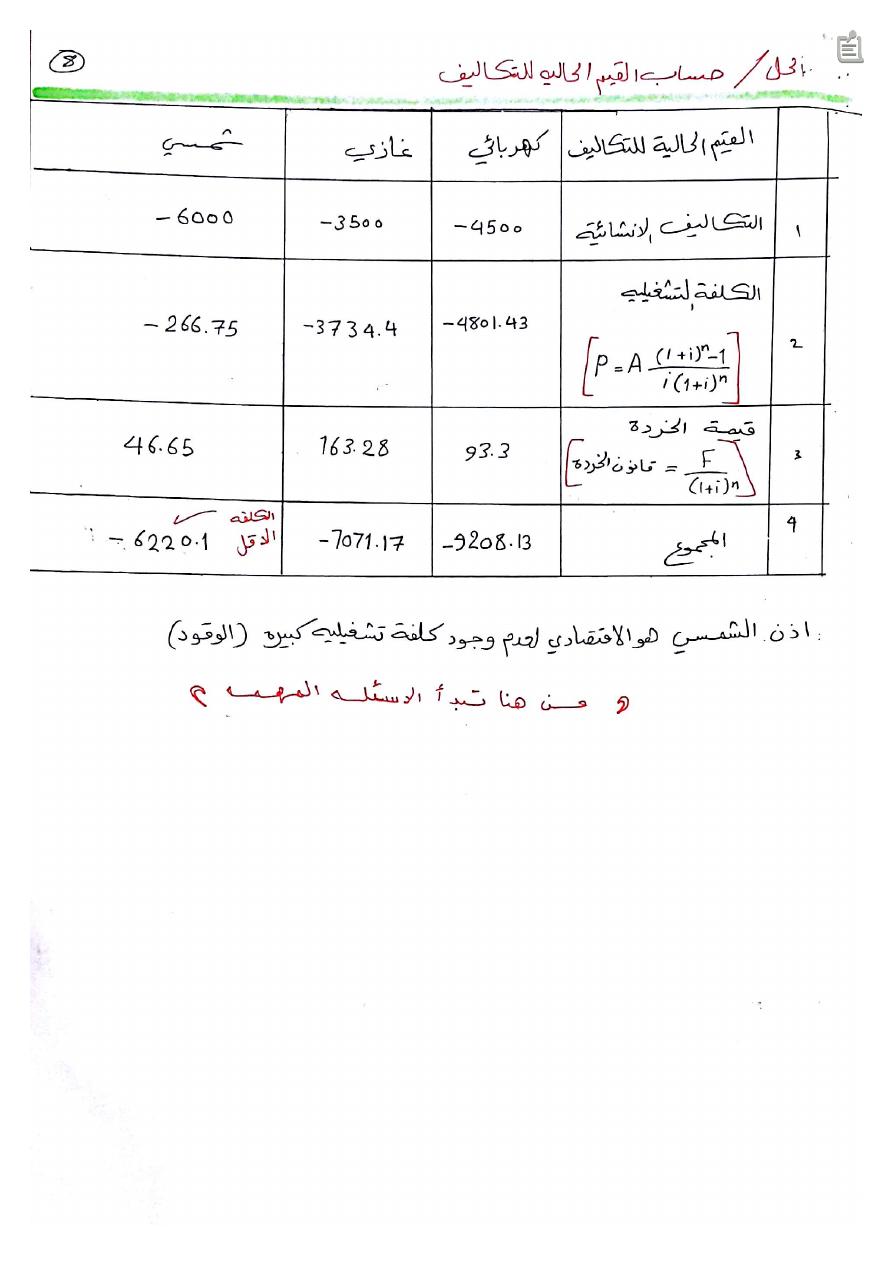 8
الحل / حساب القيم الحاليه للتكاليف
القيم الحالية للتكاليف كهربائي غازي شمسي
١ التكاليف الانشائية -4500 -3500 -6000
2 الكلفة التشغيليه -4801.43 -3734.4 -266.75
[P = A (1+i)^n-1 / i(1+i)^n]
3 قيمة الخردة 93.3 163.28 46.65
[قانون الخردة = F / (1+i)^n]
4 المجموع -9208.13 -7071.17 -6220.1 الكلفه الاقل
اذن الشمسي هو الاقتصادي لعدم وجود كلفة تشغيليه كبيره (الوقود)
من هنا تبدأ الاسئله المهمه